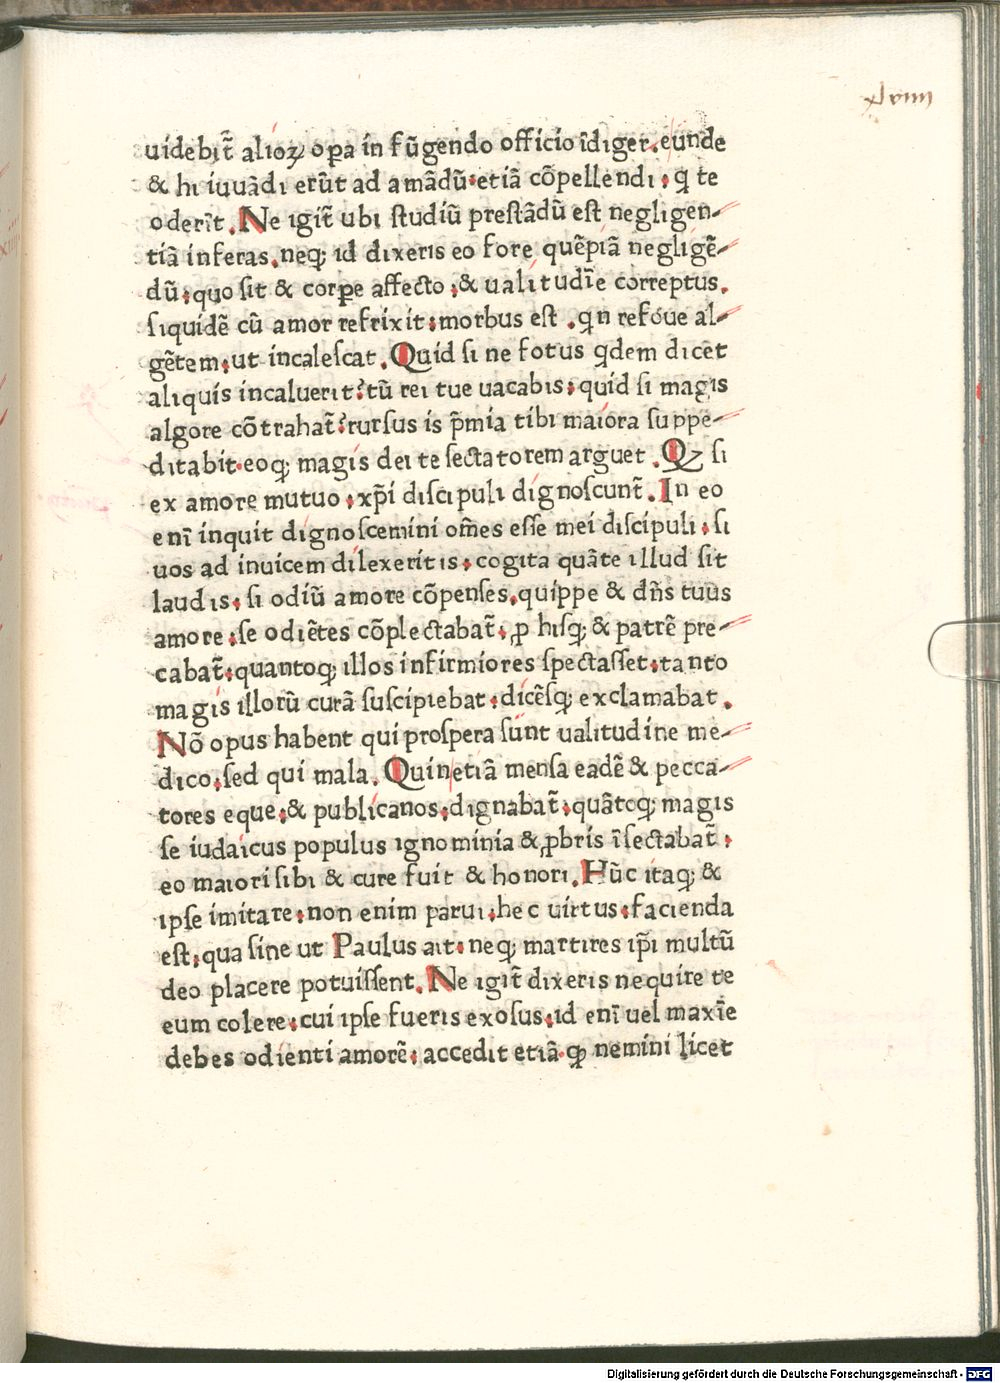 xlviiii
uidebit̃ alioꝝ oꝑa in fũgendo officio īdiger. eunde
& hi iuuãdi erũt ad amãdũ: etiã cõpellendi: q te
oderĩt. Ne igit̃ ubi studiũ prestãdũ est negligen-
tiã inferas. neqꝫ id dixeris eo fore quẽpiã negligẽ-
dũ: quo sit & corꝑe affecto: & ualitudĩe correptus.
siquidẽ cũ amor refrixit: morbus est. qn refoue al-
gẽtem: ut incalescat. Quid si ne fotus qdem dicet
aliquis incaluerit? tũ rei tue uacabis: quid si magis
algore cõtrahat̃? rursus is p̃mia tibi maiora suppe-
ditabit. eoqꝫ magis dei te sectatorem arguet. Qꝫ si
ex amore mutuo: xp̃i discipuli dignoscunt̃. In eo
enĩ inquit dignoscemini om̃es esse mei discipuli: si
uos ad inuicem dilexeritis: cogita quãte illud sit
laudis: si odiũ amore cõpenses. quippe & dñs tuus
amore: se odiẽtes cõplectabat̃. ꝓ hisqꝫ & patrẽ pre-
cabat̃: quantoqꝫ illos infirmiores spectasset: tanto
magis illorũ curã suscipiebat: dicẽsqꝫ exclamabat.
Nõ opus habent qui prospera sunt ualitudine me-
dico: sed qui mala. Quinetiã mensa eadẽ & pecca-
tores eque: & publicanos: dignabat̃: quãtoqꝫ magis
se iudaicus populus ignominia & ꝓbris ĩsectabat̃:
eo maiori sibi & cure fuit & honori. Hũc itaqꝫ &
ipse imitare: non enim parui: hec uirtus: facienda
est: qua sine ut Paulus ait: neqꝫ martires ip̃i multũ
deo placere potuissent. Ne igit̃ dixeris nequire te
eum colere: cui ipse fueris exosus: id enĩ uel maxĩe
debes odienti amorẽ: accedit etiã. qꝫ nemini licet
Digitalisierung gefördert durch die Deutsche Forschungsgemeinschaft - DFG